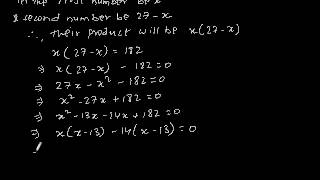 first number be x
& second number be 27-x
∴ Their product will be x(27-x)
x(27-x) = 182
⇒ x(27-x) -182=0
⇒ 27x - x² - 182 = 0
⇒ x² - 27x + 182 = 0
⇒ x² - 13x - 14x + 182 = 0
⇒ x(x-13) - 14(x-13) = 0